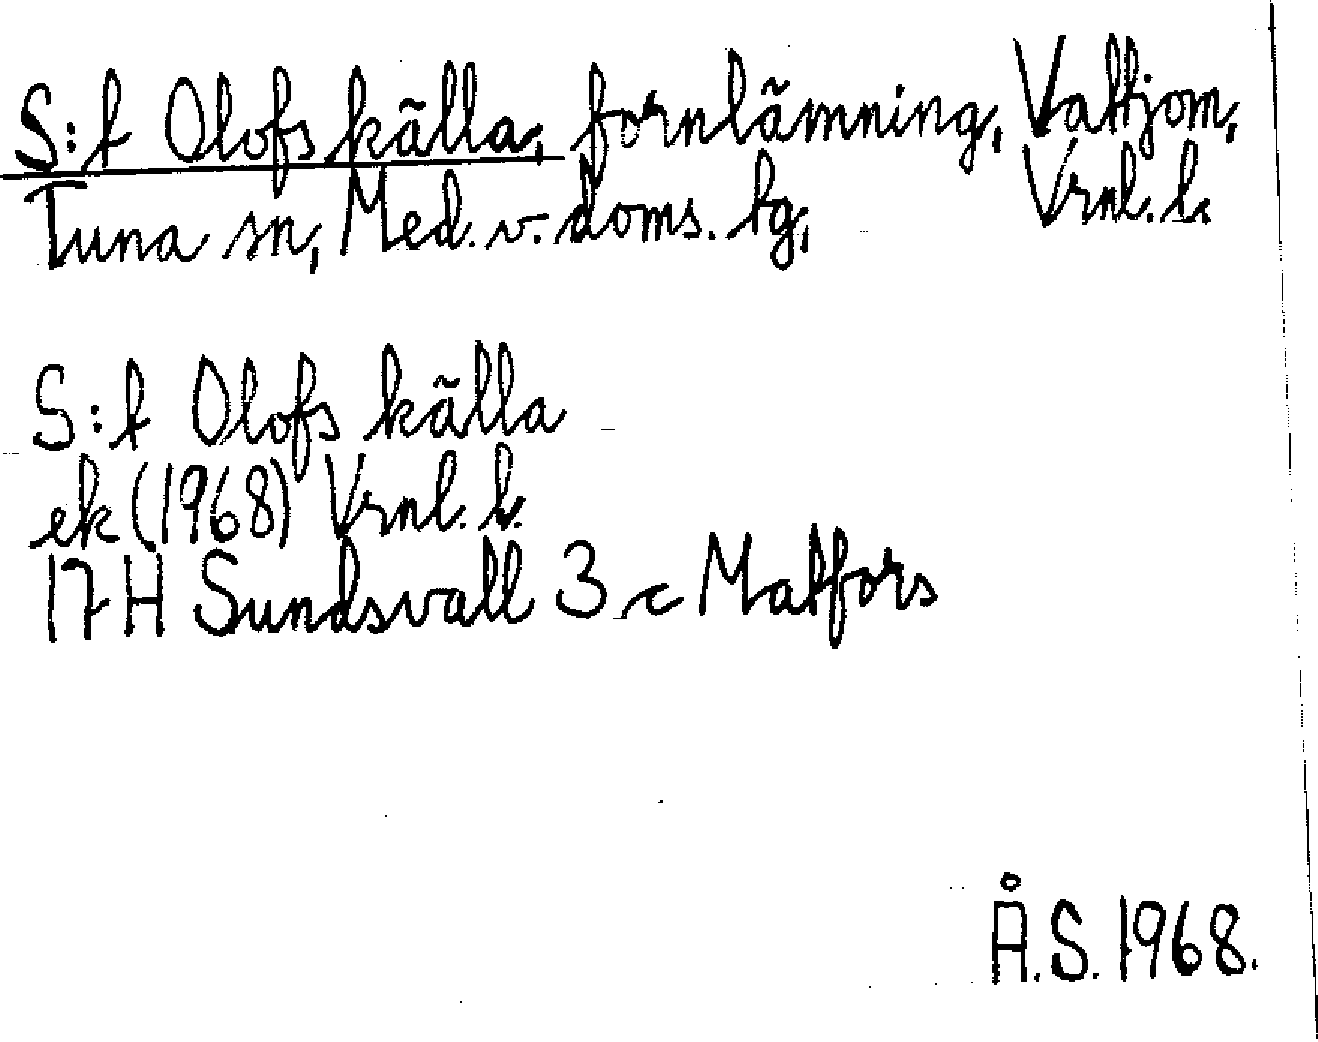 S:t Olofs källa, fornlämning, Vattjom,
Tuna sn, Med. v. doms. tg, Vrnl. l.
S:t Olofs källa
ek (1968) Vrnl. l.
17H Sundsvall 3 c Matfors
Å.S. 1968.